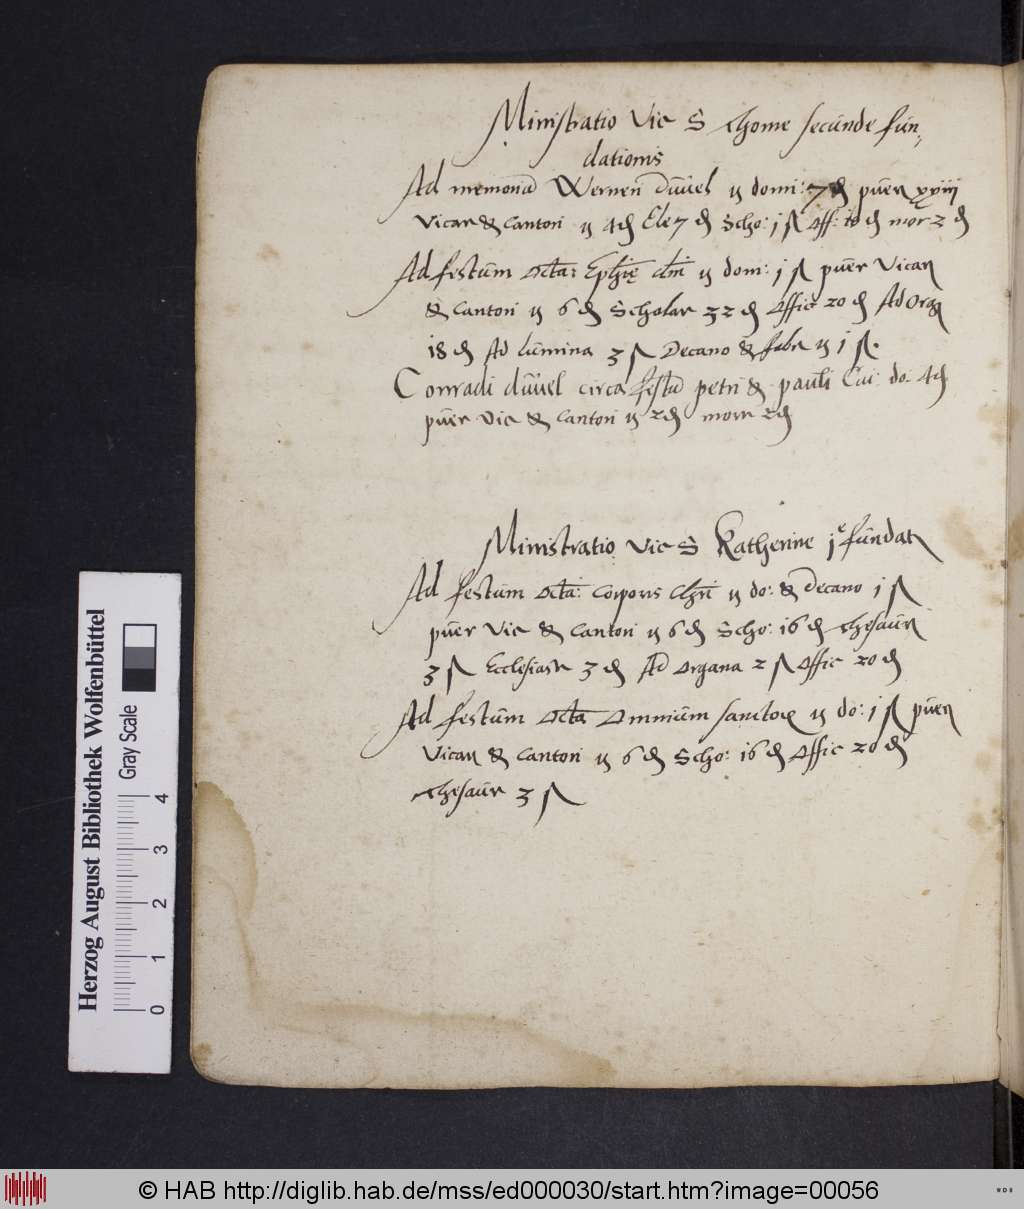 Ministratio Vic S Thome secunde fun-
dationis
Ad memoria Werneri Duvel ij domi: 7 ₰ puer xxiiij
Vicar & Cantori ij 4 ₰ Ele 7 ₰ Scho: j ß Off: 10 ₰ mor 2 ₰
Ad festum Octa: Ephie dni ij dom: j ß puer Vicar
& Cantori ij 6 ₰ Scholar 32 ₰ Offic 20 ₰ Ad Org
18 ₰ Ad Lumina 3 ß Decano & fabr ij j ß.
Conradi duvel circa festu petri & pauli Cui: do: 4 ₰
puer Vic & Cantori ij 2 ₰ morr 2 ₰
Ministratio Vic S Katherine j e fundat
Ad festum Octa: Corporis Chri ij do: & Decano j ß
puer Vic & Cantori ij 6 ₰ Scho: 16 ₰ Thesaur
3 ß Ecclesiast 3 ₰ Ad Organa 2 ß Offic 20 ₰
Ad festum Octa Omnium sanctor ij do: j ß puer
Vicar & Cantori ij 6 ₰ Scho: 16 ₰ Offic 20 ₰
Thesaur 3 ß
Herzog August Bibliothek Wolfenbüttel
Gray Scale
0 1 2 3 4
© HAB http://diglib.hab.de/mss/ed000030/start.htm?image=00056